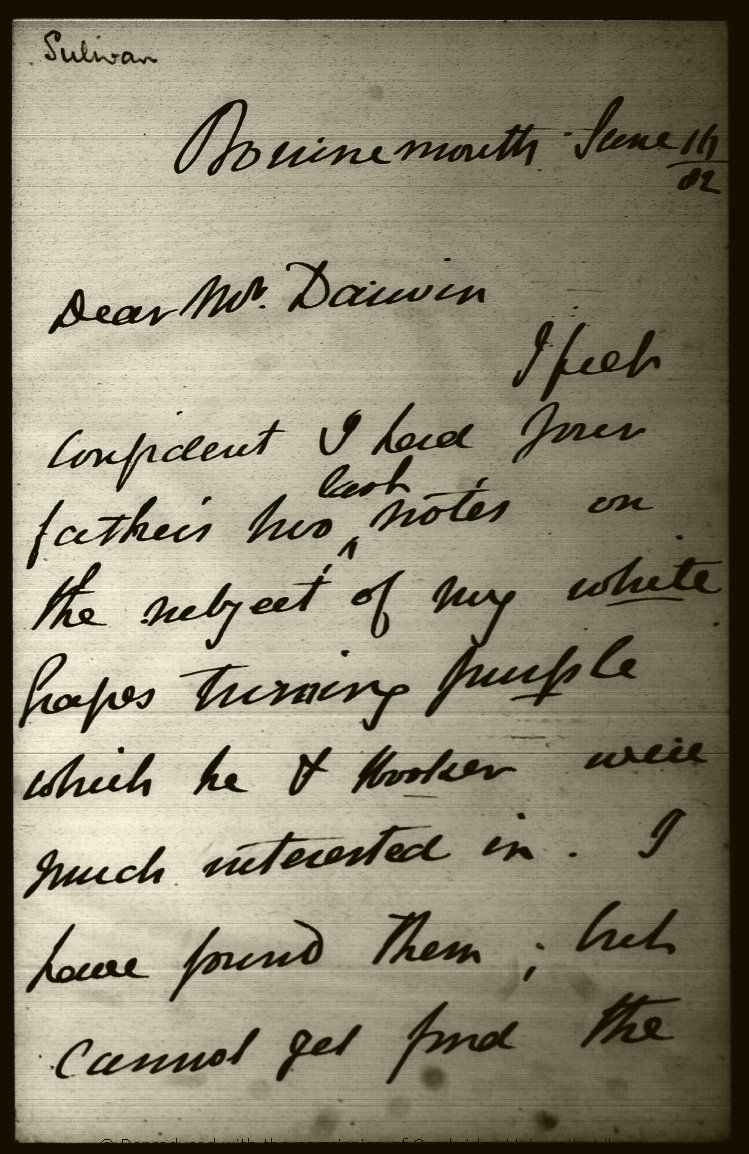 Sulivan
Bournemouth June
82
Dear Mr. Darwin
I feel
confident I had your
last
father's two notes on
the subject of my white
Grapes turning purple
which he & Hooker were
much interested in. I
have found them; but
cannot yet find the
© Reproduced with the permission of Cambridge University Library